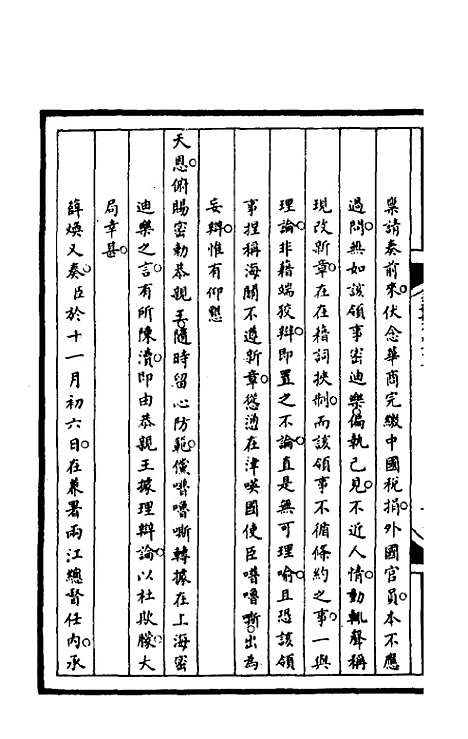 樂請奏前來伏念華商完繳中國稅捐外國官員本不應
過問無如該領事密迪樂偏執己見不近人情動輒聲稱
現改新章在在藉詞挾制而該領事不循條約之事一與
理論非藉端狡辯即置之不論直是無可理喻且恐該領
事捏稱海關不遵新章慫恿在津𠸄國使臣嚕嚕嘶出為
妥辯惟有仰懇
天恩俯賜密勅恭親王隨時留心防範儻嚕嚕嘶轉據在上海密
迪樂之言有所陳瀆即由恭親王據理辯論以杜欺朦大
局幸甚
薛煥又奏臣於十一月初六日在兼署兩江總督任內承